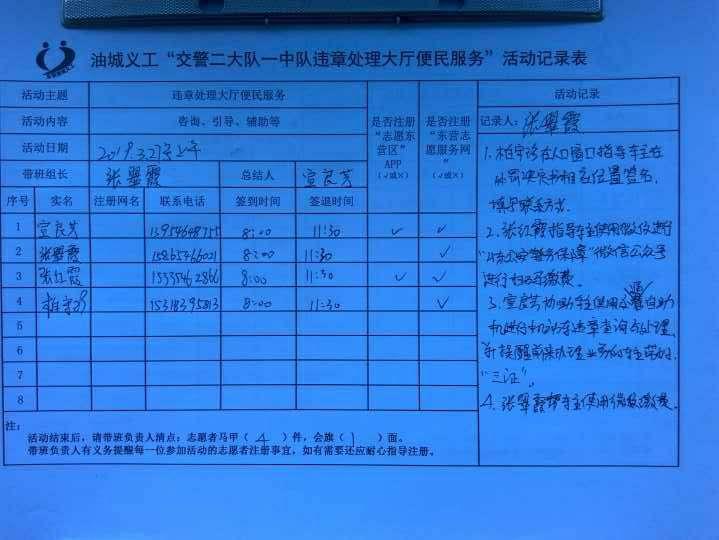 油城义工“交警二大队一中队违章处理大厅便民服务”活动记录表
活动主题 违章处理大厅便民服务 是否注册“志愿东营区”APP（√或×） 是否注册“东营志愿服务网”（√或×） 活动记录
活动内容 咨询、引导、辅助等 记录人：张翠霞
活动日期 2019.3.27 上午
带班组长 张翠霞 总结人 宣良芳
序号 实名 注册网名 联系电话 签到时间 签退时间
1 宣良芳 13954648755 8:00 11:30 √ √
2 张翠霞 15865466021 8:00 11:30 √
3 张红霞 1535462866 8:00 11:30 √ √
4 15318395813 8:00 11:30 √
5
6
7
8
1. 在人口窗口指导车主在
处罚决定书相应位置签名，
填写联系方式。
2. 张红霞指导车主使用微信进行
“微信公众号
进行扫码缴费。
3. 宣良芳协助车主使用自助
机进行机动车违章查询和处理，
并提醒前来办理业务的车主带好
“三证”。
4. 张翠霞帮车主使用微信缴费。
注：
活动结束后，请带班负责人清点：志愿者马甲（4）件，会旗（1）面。
带班负责人有义务提醒每一位参加活动的志愿者注册事宜，如有需要还应耐心指导注册。